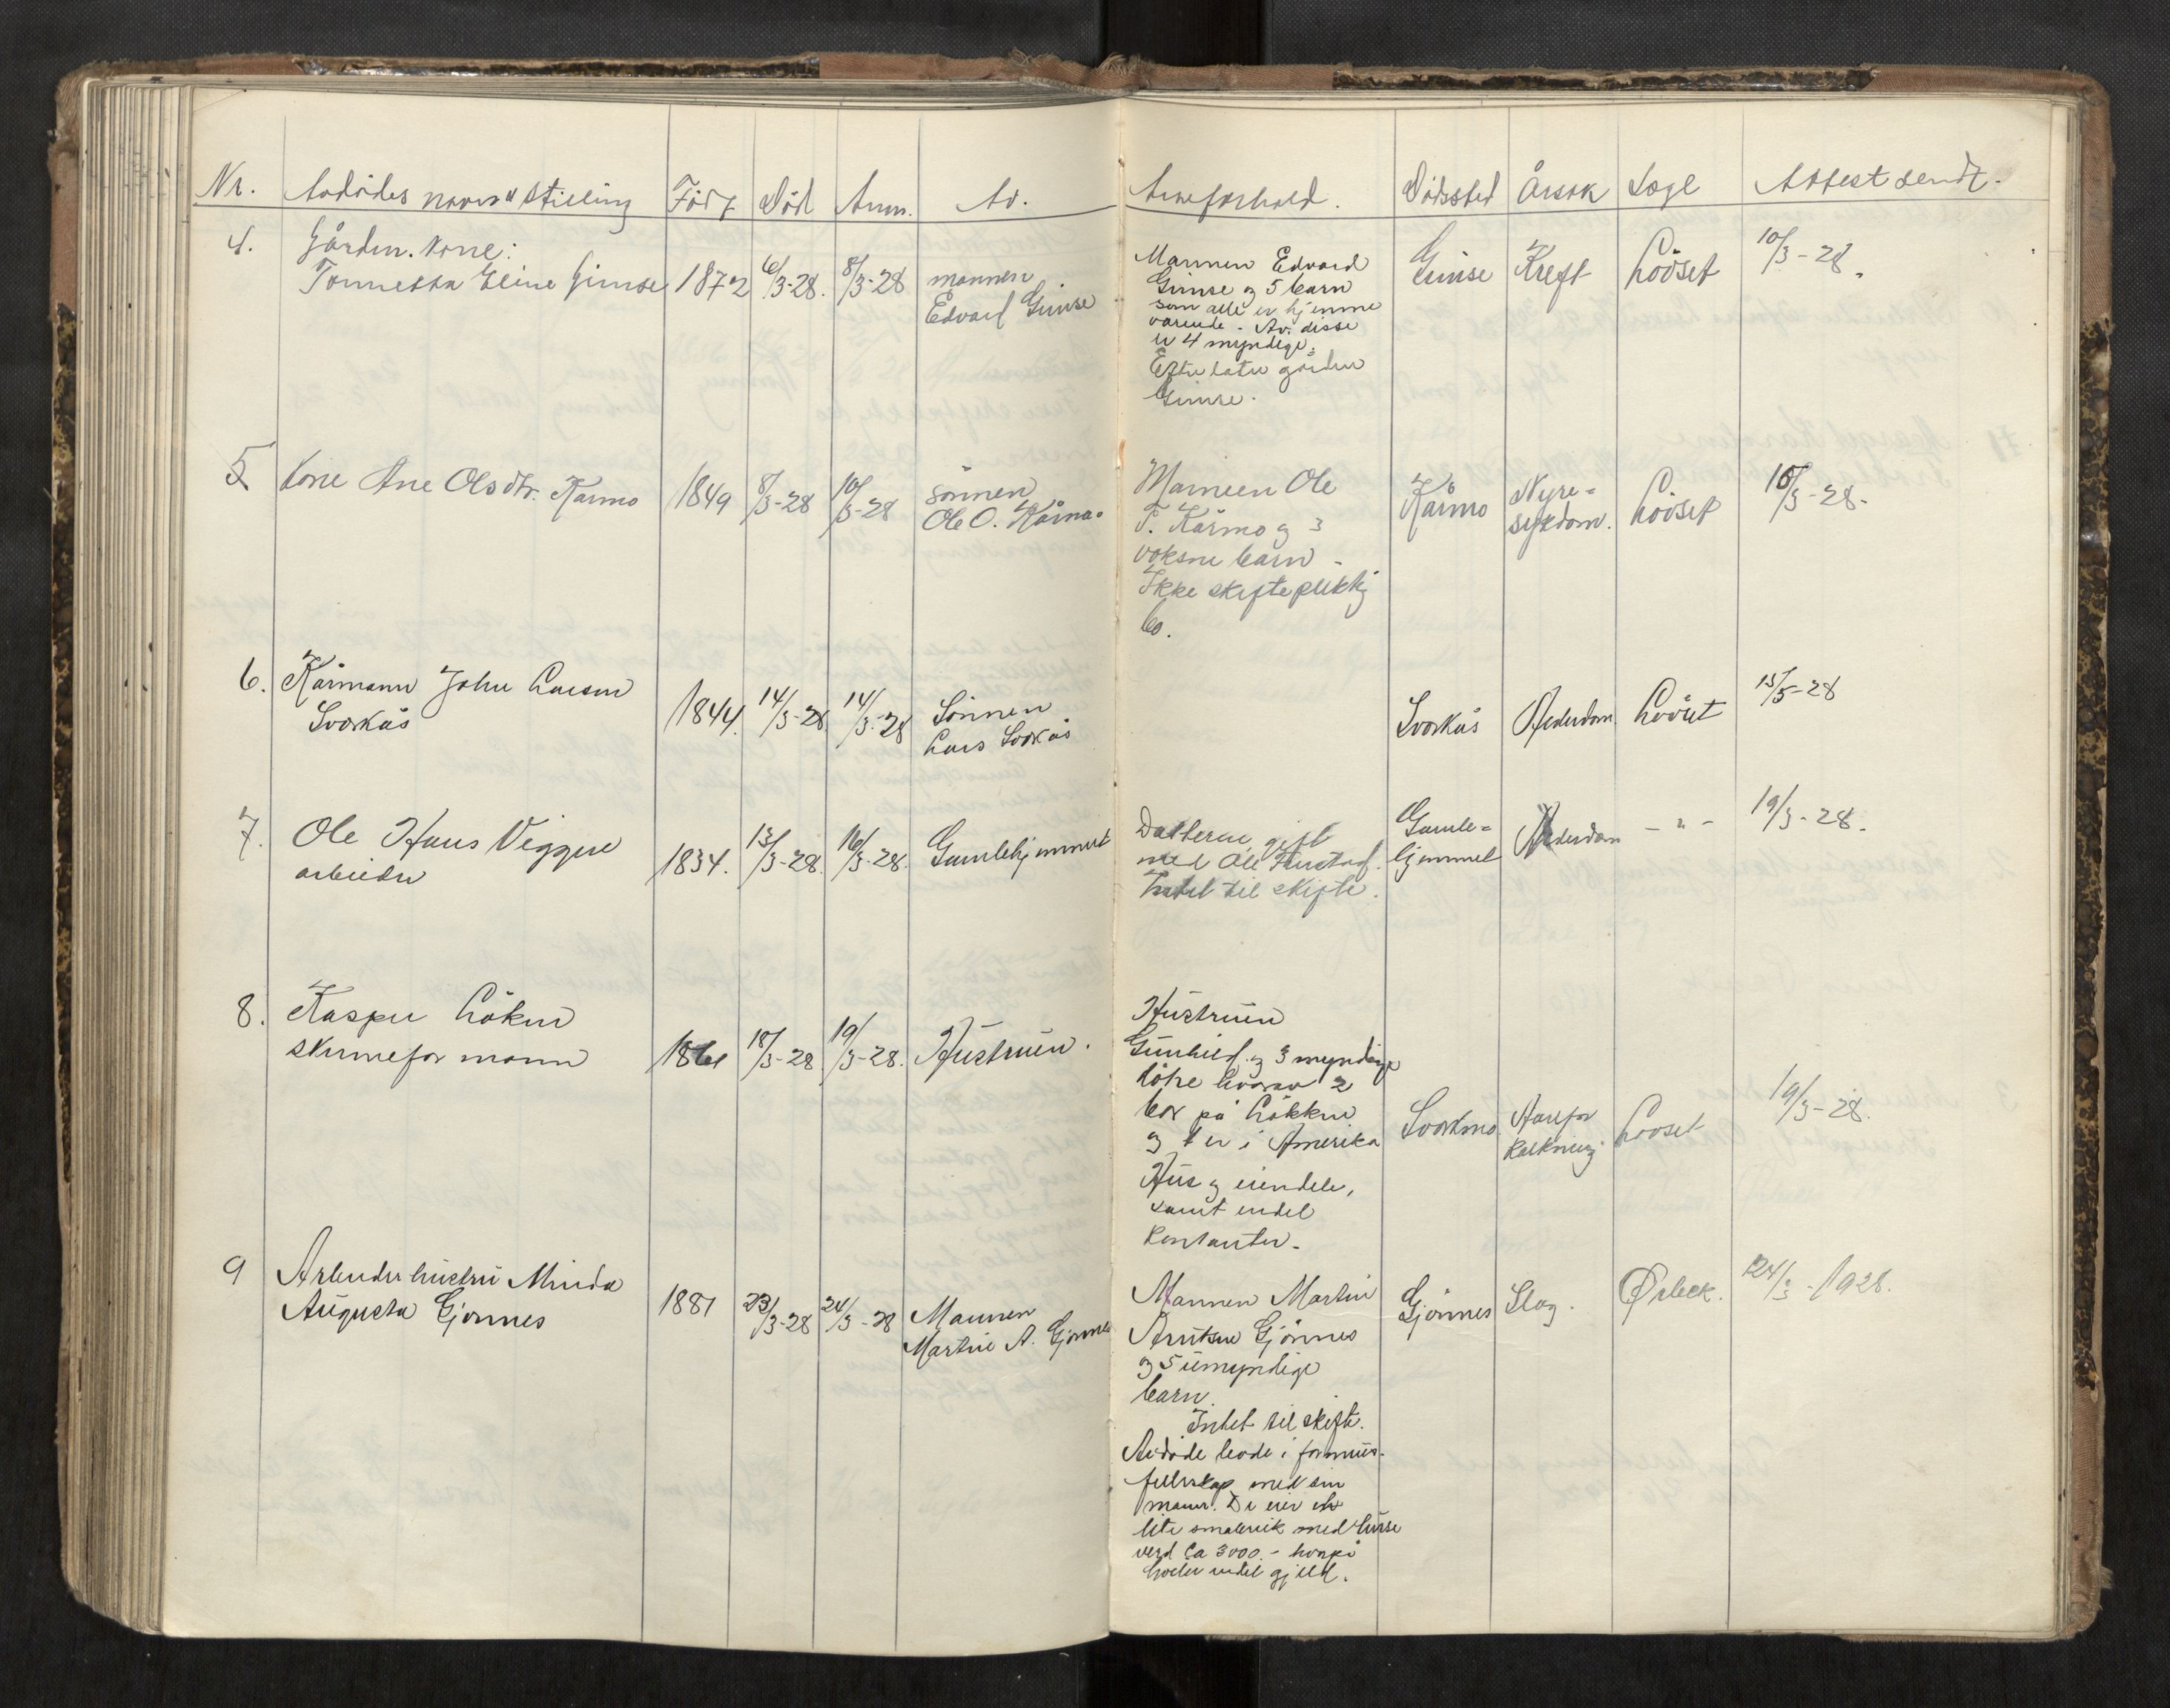 Nr. Avdödes navn & stilling Född Död Anm. Av. Arveforhold. Dödssted Årsak Læge Attest sendt.
4. Gårdm. kone:
Tonnetta Eline Gimse 1872 6/3-28. 8/3-28 mannen
Edvard Gimse
Mannen Edvard
Gimse og 5 barn
som alle er hjemme
værende. Av disse
er 4 myndige.
Efterlater gården
Gimse.
Gimse Kreft Lööset 10/3-28.
5 Kone Ane Olsdtr. Kårmo 1849 8/3-28 10/3-28 sönnen
Ole O. Kårmo.
Mannen Ole
T. Kårmo og 3
voksne barn.
Ikke skiftepliktig
bo.
Kårmo Nyre-
sykdom. Lööset 10/3-28.
6. Kårmann John Larsen
Svorkås 1844. 14/3-28. 14/3-28 Sönnen
Lars Svorkås
Svorkås Alderdom. Lööset 15/3-28
7. Ole Hans Viggen
arbeider 1834. 13/3-28. 16/3-28. Gamlehjemmet
Datteren gift
med Ole
Intet til skifte.
Gamle-
hjemmet Alderdom - " - 19/3-28.
8. Kasper Löken
skinneformann 1861 18/3-28 19/3-28. Hustruen.
Hustruen
Gunhild og 3 myndige
dötre hvorav 2
bor på Lökken
og 1 er i Amerika
Hus og eiendele,
samt endel
kontanter.
Svorkmo. Aarefor
kalkning Lööset 19/3-28.
9 Arbeiderhustru Minda
Augusta Gjönnes 1881 23/3-28 24/3-28 Mannen
Martin A. Gjönnes
Mannen Martin
Arntsen Gjönnes
og 5 umyndige
barn.
Intet til skifte.
Avdöde levde i formues-
fellesskap med sin
mann. De eier et
lite småbruk med huse
verd ca 3000.- hvorpå
hviler endel gjeld.
Gjönnes Slag. Ørbeck. 24/3-1928.